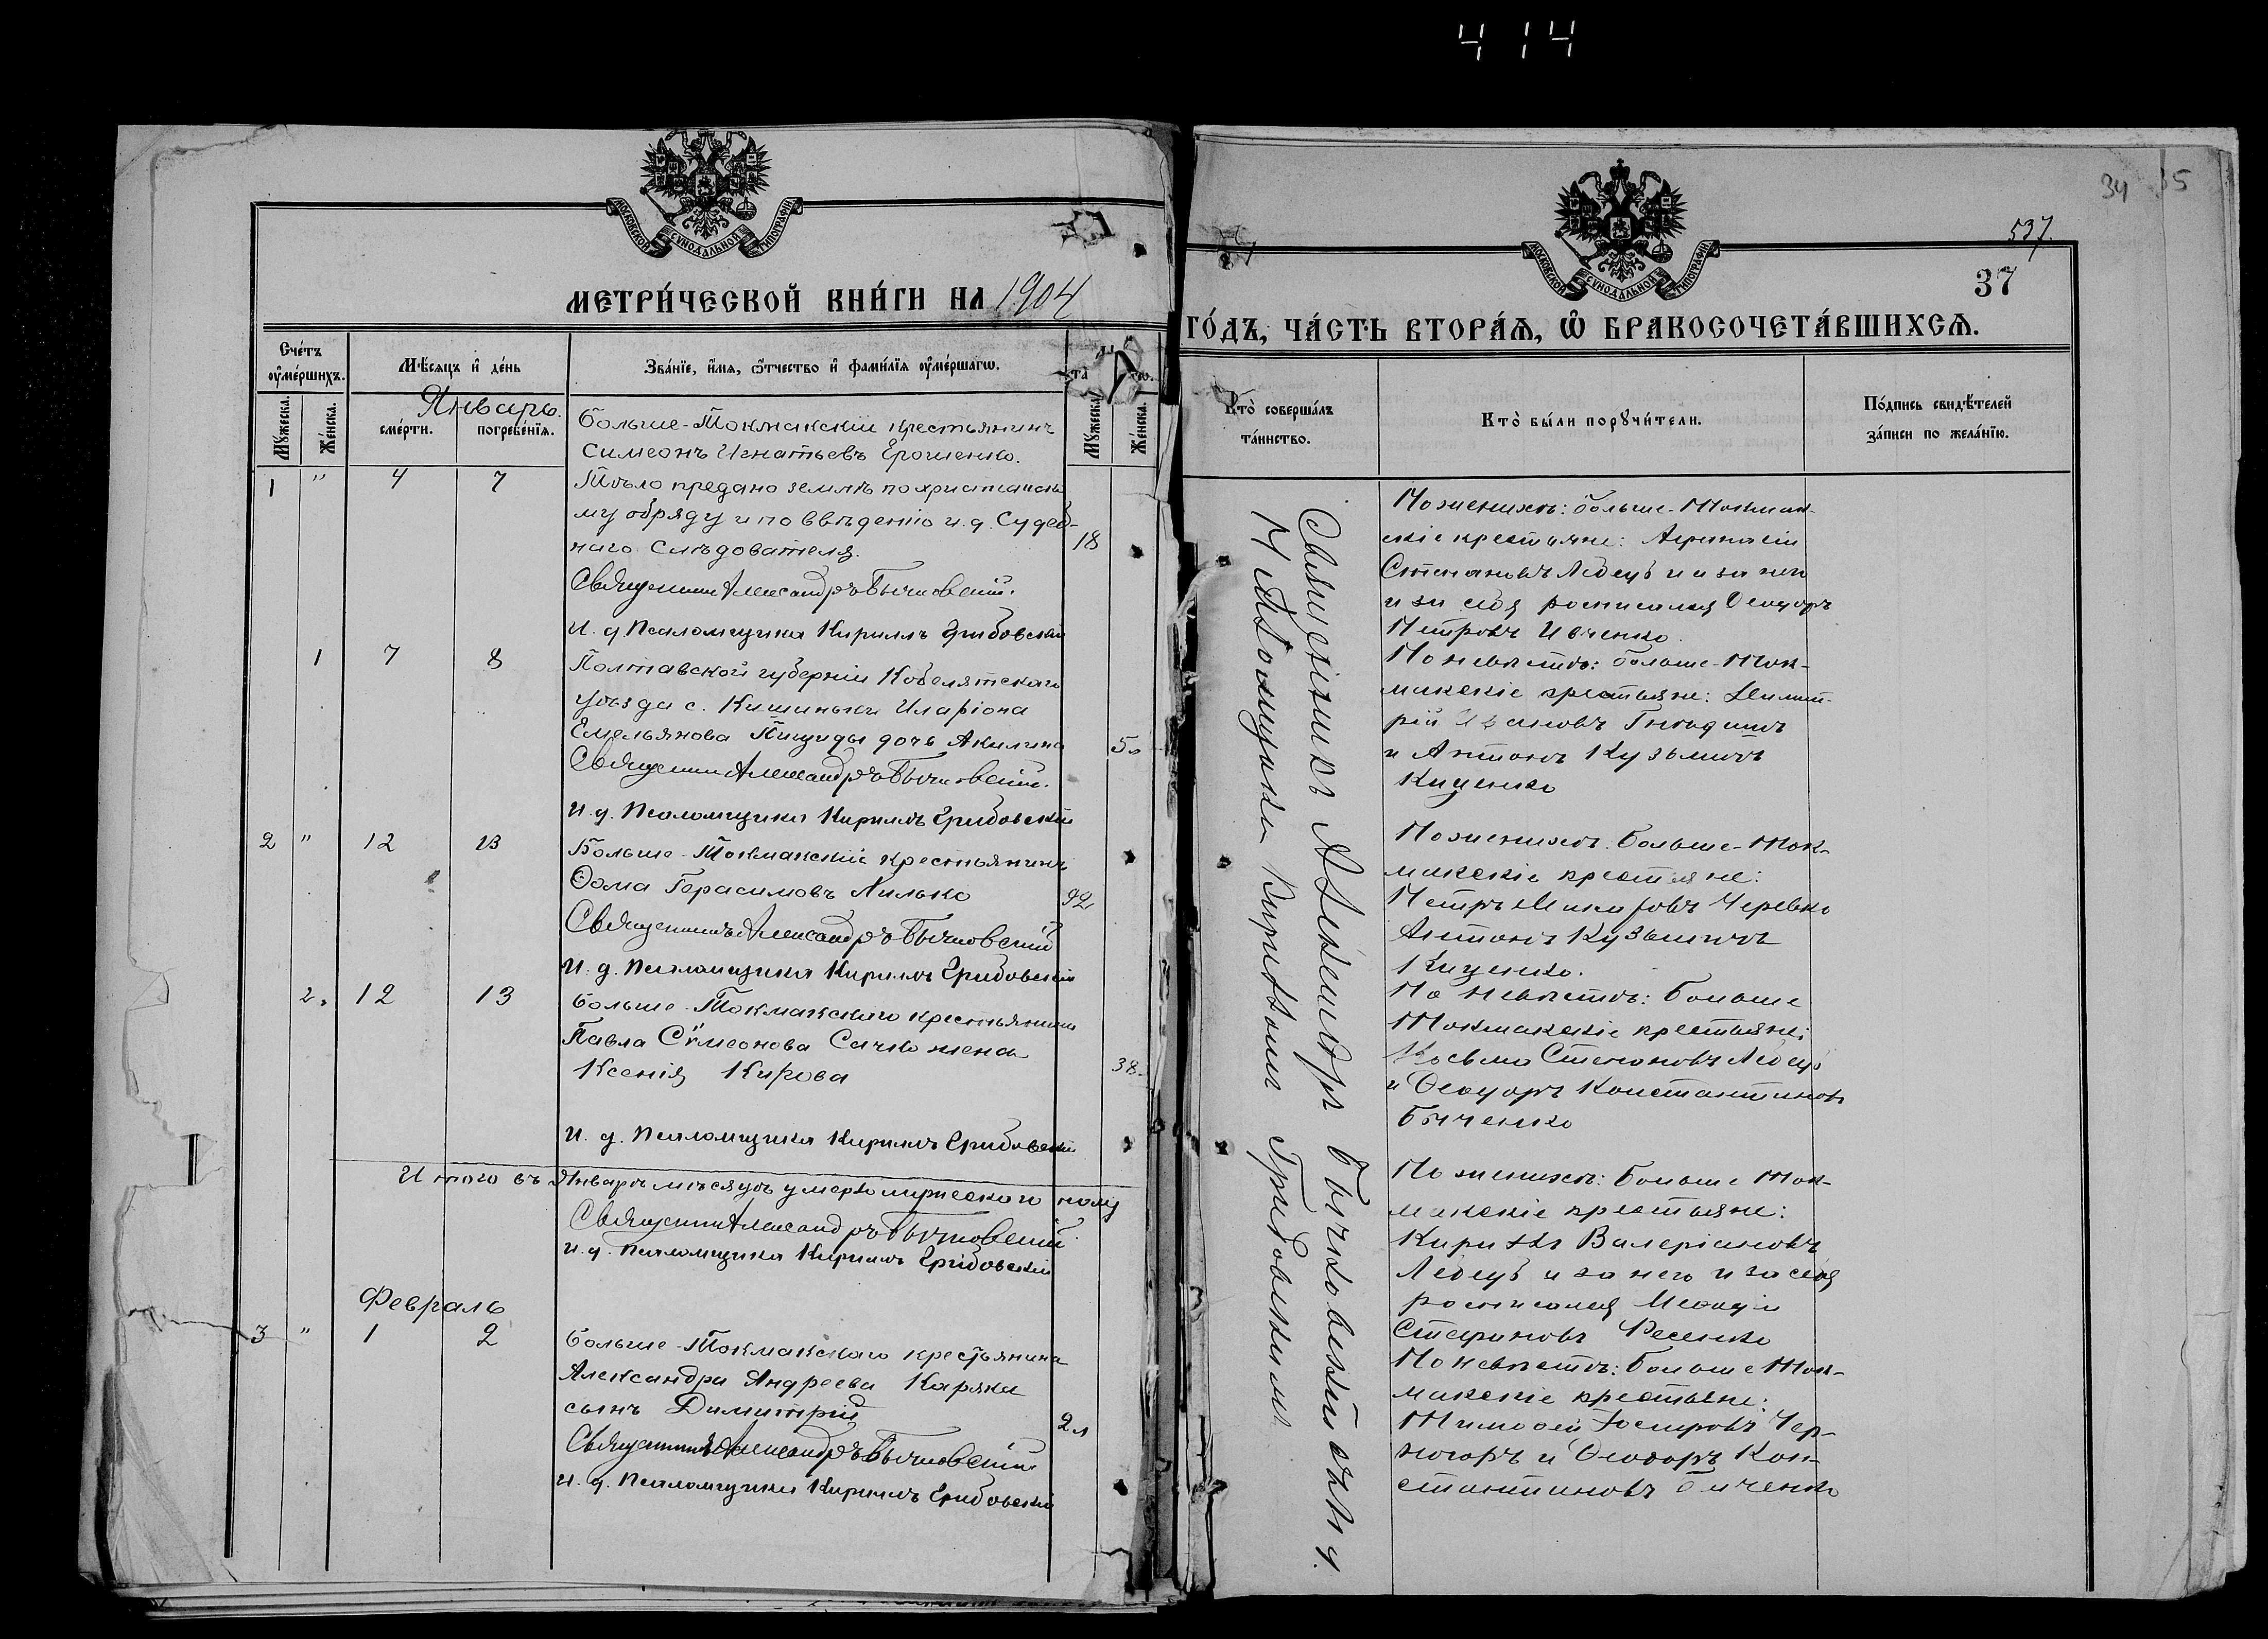 414
МОСКОВСКОЙ СѴНОДАЛЬНОЙ ТИПОГРАФІИ
МЕТРИ́ЧЕСКОЙ КНИ́ГИ НА 1904
Сче́тъ ᲂу҆ме́ршихъ.
Мꙋ́жеска.
Же́нска.
Мѣ́сяцъ и҆ де́нь
Январь.
сме́рти.
погребе́нїя.
Зва́нїе, и҆́мя, ѻ҆́тчество и҆ фами́лїя ᲂу҆ме́ршагѡ.
Мꙋ́жеска.
Же́нска.
Больше-Токмакскій крестьянинъ
Симеонъ Игнатьевъ Ерошенко.
1 " 4 7 Тѣло предано землѣ по христіанско
му обряду и по ввѣденію и. д. Судеб-
наго Слѣдователя. 18
Священникъ Александръ Бычковскій.
И. д. Псаломщика Кириллъ Грибовскій
1 7 8 Полтавской губерніи Кобелятскаго
уѣзда с. Кишиньки Иларіона
Емельянова Пищиды дочь Акилина 5
Священникъ Александръ Бычковскій.
И. д. Псаломщика Кириллъ Грибовскій
2 " 12 13 Больше-Токмакскій крестьянинъ
Ѳома Герасимовъ Лилько 92
Священникъ Александръ Бычковскій
И. д. Псаломщика Кириллъ Грибовскій
2. 12 13 Больше-Токмакскаго крестьянина
Павла Сѵмеонова Сачко жена
Ксенія Кирова 38
И. д. Псаломщика Кириллъ Грибовскій
Итого въ Январѣ мѣсяцѣ умерло мужескаго полу
Священникъ Александръ Бычковскій
И. д. Псаломщика Кириллъ Грибовскій
Февраль
3 " 1 2 Больше-Токмакского крестьянина
Александра Андреева Каряка
сынъ Димитрій 2 л
Священникъ Александръ Бычковскій
И. д. Псаломщика Кириллъ Грибовскій
34 35
537.
МОСКОВСКОЙ СѴНОДАЛЬНОЙ ТИПОГРАФІИ
37
ГО́ДЪ, ЧА́СТЬ ВТОРА́Я, Ѽ БРАКОСОЧЕТА́ВШИХСЯ.
Кто̀ соверша́лъ
та́инство.
Кто̀ бы́ли порꙋчи́тели.
По́дпись свидѣ́телей
за́писи по жела́нїю.
Священникъ Александръ Бычковскій съ и. д.
Псаломщика Кирилломъ Грибовскимъ
По женихѣ: больше-Токмак-
скіе крестьяне: Аѳанасій
Степановъ Лебедь и и за него
и за себя росписался Ѳеодоръ
Петровъ Ивченко.
По невѣстѣ: больше-Ток-
макскіе крестьяне: Димит-
рій Ивановъ Гнѣдашъ
и Антонъ Кузьмичъ
Киценко
По женихѣ: больше-Ток-
макскіе крестьяне:
Петръ Никифовъ Черевко
Антонъ Кузьмичъ
Киценко.
По невѣстѣ: Больше
Токмакскіе крестьяне:
Косьма Степановъ Лебедь
и Ѳеодоръ Константиновъ
Биченко
По женихѣ: Больше Ток-
макскіе крестьяне:
Кириллъ Валеріановъ
Лебедь и за него и за себя
росписался
Ресенко
По невѣстѣ: Больше Ток-
макскіе крестьяне:
Тимоѳей Чер-
ногоръ и Ѳеодоръ Кон-
стантиновъ Биченко